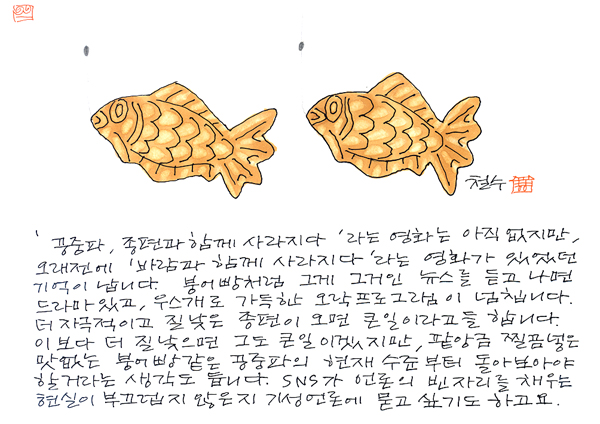 철수
'공중파, 종편과 함께 사라지다'라는 영화는 아직 없지만,
오래전에 '바람과 함께 사라지다'라는 영화가 있었던
기억이 납니다. 붕어빵처럼 그게 그거인 뉴스를 듣고 나면
드라마 있고, 우스개로 가득한 오락프로그램이 넘칩니다.
더 자극적이고 질 낮은 종편이 오면 큰일이라고들 합니다.
이보다 더 질 낮으면 그도 큰일이겠지만, 팥앙금 찔끔넣은
맛없는 붕어빵같은 공중파의 현재 수준부터 돌아보아야
할거라는 생각도 듭니다. SNS가 언론의 빈자리를 채우는
현실이 부끄럽지 않은지 기성언론에 묻고 싶기도 하고요.